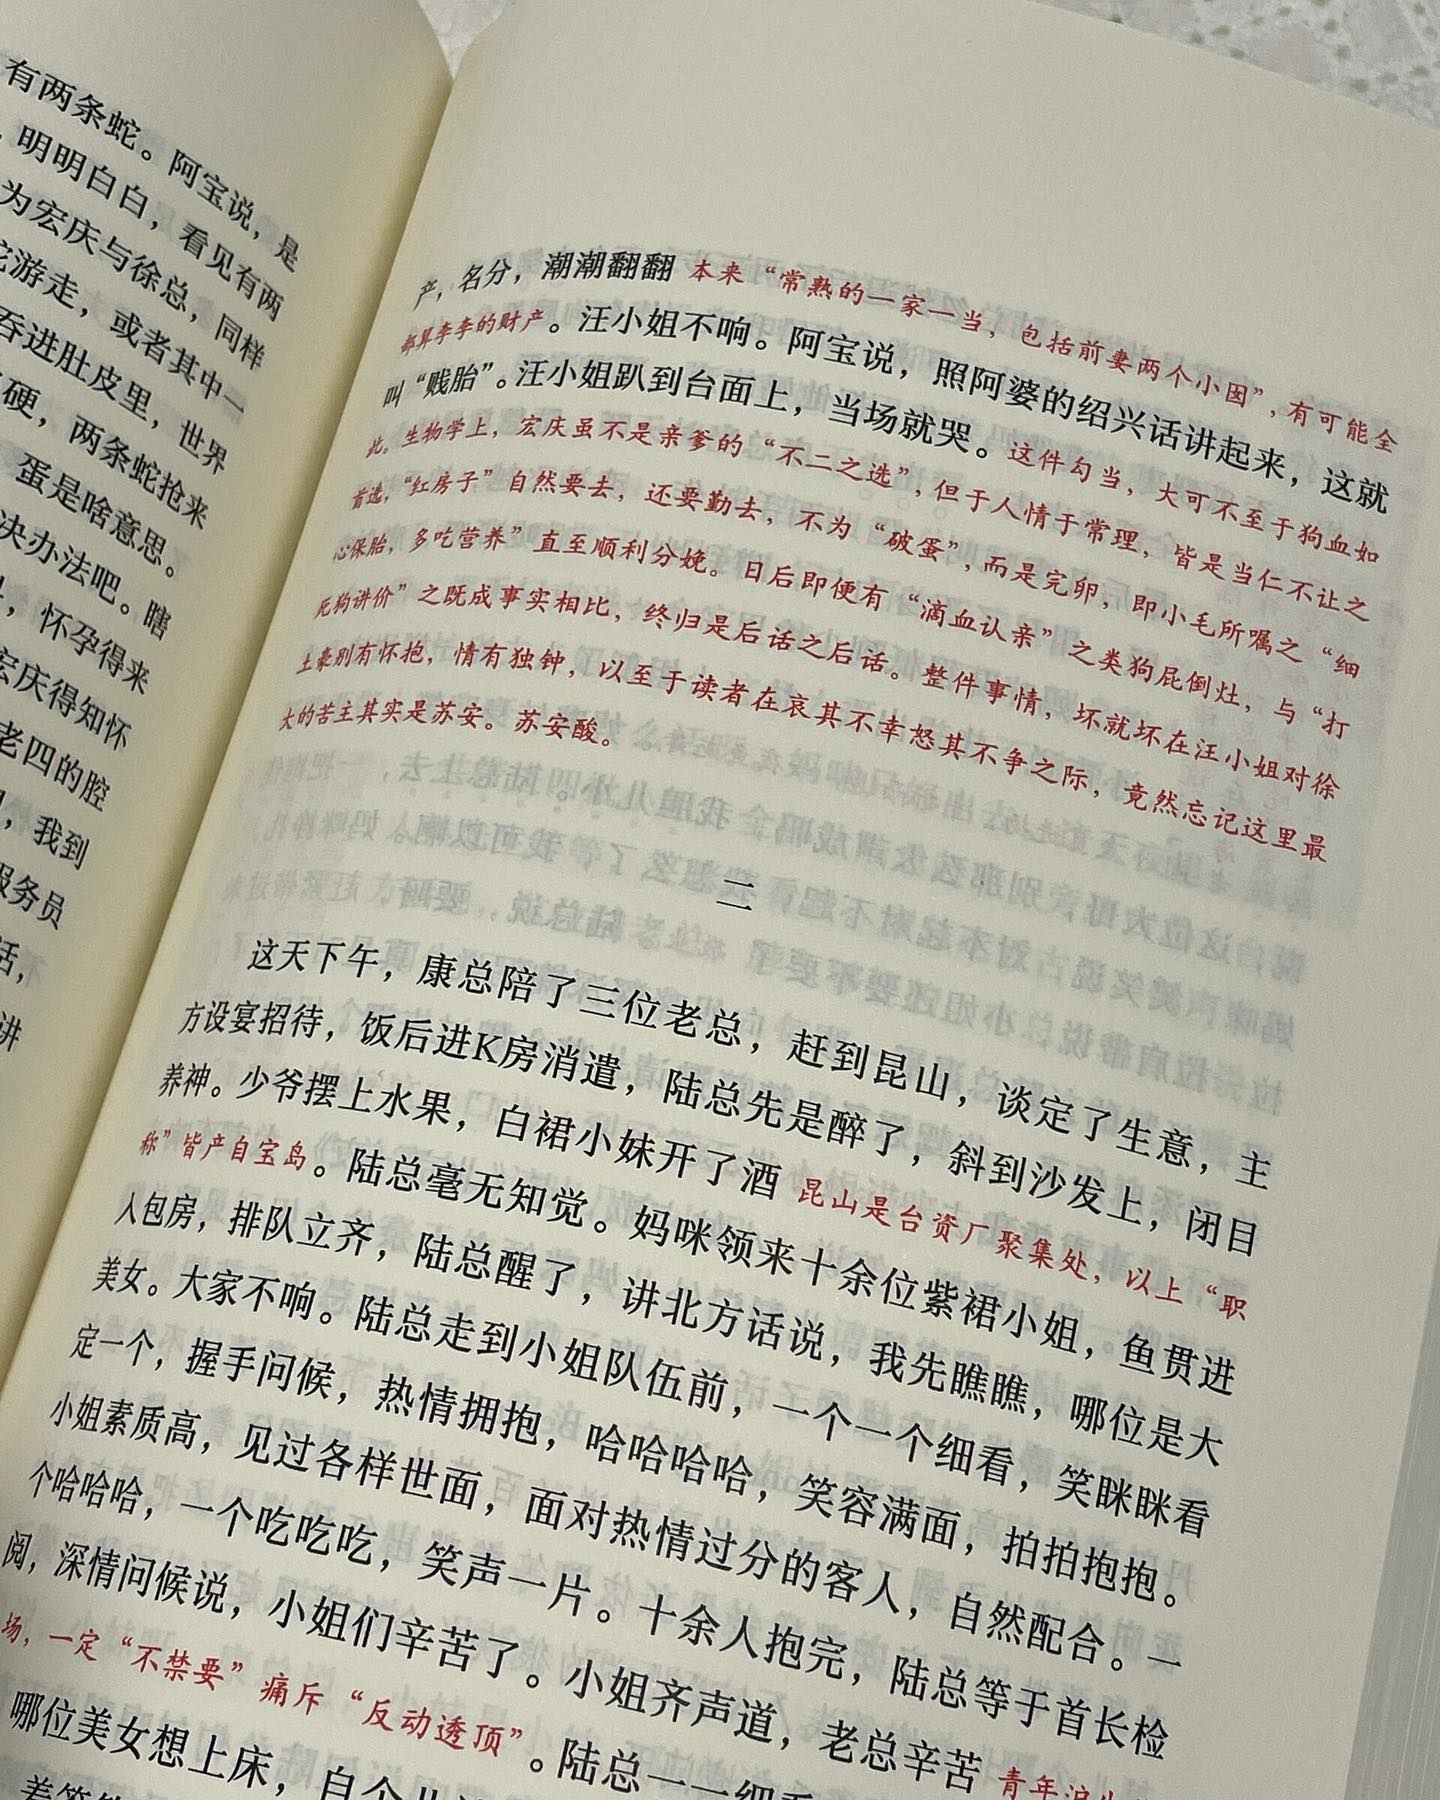 有两条蛇。阿宝说，是
，明明白白，看见有两
为宏庆与徐总，同样
游走，或者其中一
吞进肚皮里，世界
硬，两条蛇抢来
蛋是啥意思。
决办法吧。瞎
，怀孕得来
宏庆得知怀
老四的腔
，我到
服务员
活，
讲
产，名分，潮潮翻翻 本来“常熟的一家一当，包括前妻两个小囡”，有可能全
都算李李的财产。汪小姐不响。阿宝说，照阿婆的绍兴话讲起来，这就
叫“贱胎”。汪小姐趴到台面上，当场就哭。这件勾当，大可不至于狗血如
此。生物学上，宏庆虽不是亲爹的“不二之选”，但于人情于常理，皆是当仁不让之
首选，“红房子”自然要去，还要勤去，不为“破蛋”，而是完卵，即小毛所嘱之“细
心保胎，多吃营养”直至顺利分娩。日后即便有“滴血认亲”之类狗屁倒灶，与“打
死狗讲价”之既成事实相比，终归是后话之后话。整件事情，坏就坏在汪小姐对徐
土豪别有怀抱，情有独钟，以至于读者在哀其不幸怒其不争之际，竟然忘记这里最
大的苦主其实是苏安。苏安酸。
二
这天下午，康总陪了三位老总，赶到昆山，谈定了生意，主
方设宴招待，饭后进K房消遣，陆总先是醉了，斜到沙发上，闭目
养神。少爷摆上水果，白裙小妹开了酒 昆山是台资厂聚集处，以上“职
称”皆产自宝岛。陆总毫无知觉。妈咪领来十余位紫裙小姐，鱼贯进
人包房，排队立齐，陆总醒了，讲北方话说，我先瞧瞧，哪位是大
美女。大家不响。陆总走到小姐队伍前，一个一个细看，笑眯眯看
定一个，握手问候，热情拥抱，哈哈哈哈，笑容满面，拍拍抱抱。
小姐素质高，见过各样世面，面对热情过分的客人，自然配合。一
个哈哈哈，一个吃吃吃，笑声一片。十余人抱完，陆总等于首长检
阅，深情问候说，小姐们辛苦了。小姐齐声道，老总辛苦 青年
场，一定“不禁要”痛斥“反动透顶”。陆总一一细
哪位美女想上床，自个儿